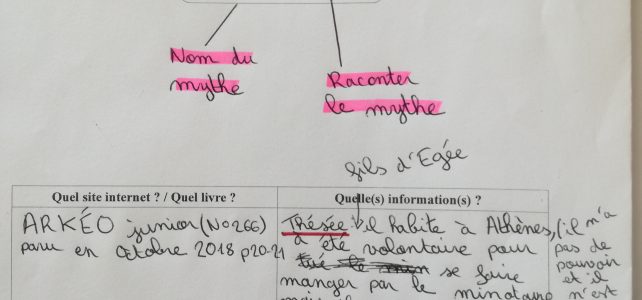 Nom du
mythe
Raconter
le mythe
fils d'Egée
Quel site internet ? / Quel livre ?
Quelle(s) information(s) ?
ARKÉO junior (No 266)
paru en Octobre 2018 p20-21
Thésée il habite à Athènes,
a été volontaire pour
se faire
manger par le minotaure
(il n'a
pas de
pouvoir
et il
n'est